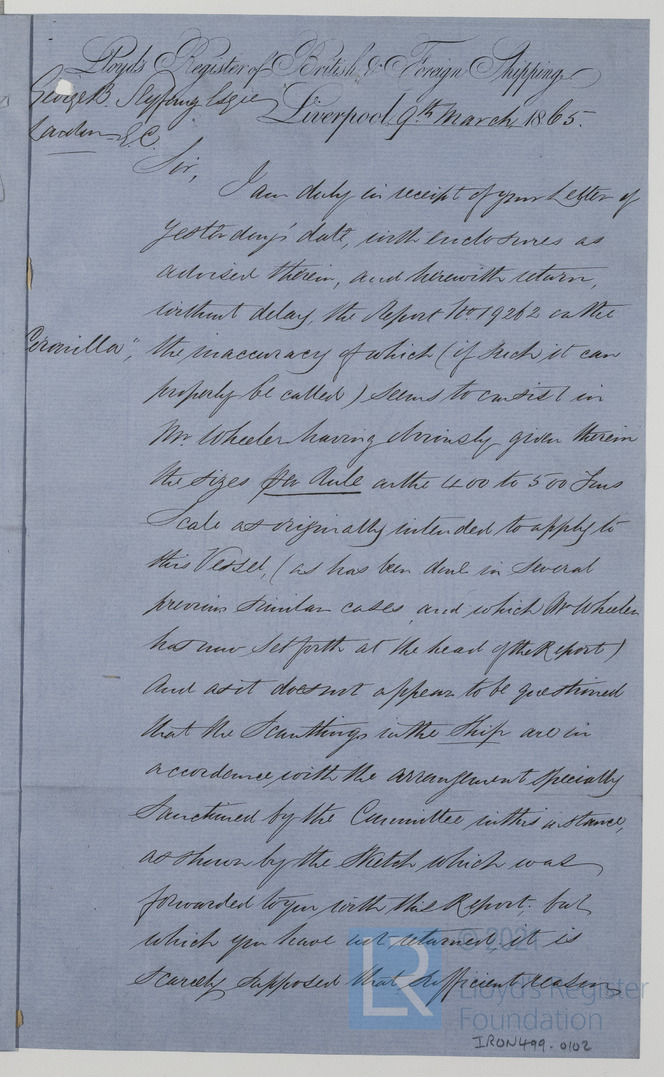 Lloyd's Register of British & Foreign Shipping
George B. Seyfang Esqre
London E.C.
Liverpool, 9th March, 1865.
Sir,
I am duly in receipt of your Letter of
yesterday's date, with enclosures as
advised therein, and herewith return,
without delay, the Report No. 19262 on the
"
the inaccuracy of which (if such it can
properly be called) seems to consist in
Mr Wheeler having obviously given therein
the sizes per Rule on the 400 to 500 Tons
Scale as originally intended to apply to
this Vessel, (as has been done in several
previous similar cases, and which Mr Wheeler
has now set forth at the head of the Report)
And as it does not appear to be questioned
that the Scantlings in the Ship are in
accordance with the arrangement specially
Sanctioned by the Committee in this instance,
as shown by the Sketch which was
forwarded to you with the Report; but
which you have not returned it is
scarcely supposed that sufficient reason
© 2021
LR
Lloyd's Register
Foundation
IRON499-0102